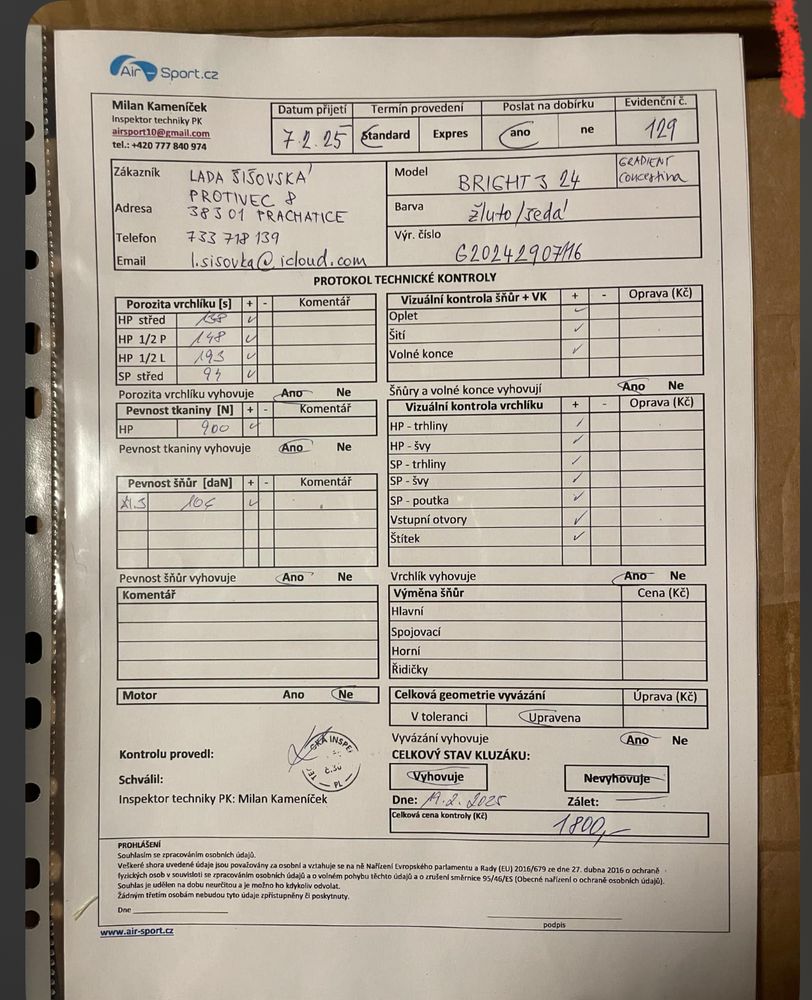 Air-Sport.cz
Milan Kameníček
Inspektor techniky PK
airsport10@gmail.com
tel.: +420 777 840 974
Datum přijetí Termín provedení Poslat na dobírku Evidenční č.
7.2.25 Standard Expres ano ne 129
Zákazník LADA ŠIŠOVSKÁ
Adresa PROTIVEC 8
38301 PRACHATICE
Telefon 733 718 139
Email l.sisovka@icloud.com
Model BRIGHT 3 24 GRADIENT
Barva žluto/šedá
Výr. číslo G20242907116
PROTOKOL TECHNICKÉ KONTROLY
Porozita vrchlíku [s] + - Komentář
HP střed 138 ✓
HP 1/2 P 148 ✓
HP 1/2 L 193 ✓
SP střed 94 ✓
Porozita vrchlíku vyhovuje Ano Ne
Pevnost tkaniny [N] + - Komentář
HP 900 ✓
Pevnost tkaniny vyhovuje Ano Ne
Pevnost šňůr [daN] + - Komentář
✓
Pevnost šňůr vyhovuje Ano Ne
Komentář
Motor Ano Ne
Vizuální kontrola šňůr + VK + - Oprava (Kč)
Oplet ✓
Šití ✓
Volné konce ✓
Šňůry a volné konce vyhovují Ano Ne
Vizuální kontrola vrchlíku + - Oprava (Kč)
HP - trhliny ✓
HP - švy ✓
SP - trhliny ✓
SP - švy ✓
SP - poutka ✓
Vstupní otvory ✓
Štítek ✓
Vrchlík vyhovuje Ano Ne
Výměna šňůr Cena (Kč)
Hlavní
Spojovací
Horní
Řidičky
Celková geometrie vyvázání Úprava (Kč)
V toleranci Upravena
Vyvázání vyhovuje Ano Ne
CELKOVÝ STAV KLUZÁKU:
Vyhovuje Nevyhovuje
Dne: 19.2.2025 Zálet:
Celková cena kontroly (Kč) 1800,-
Kontrolu provedl:
Schválil:
Inspektor techniky PK: Milan Kameníček
PROHLÁŠENÍ
Souhlasím se zpracováním osobních údajů.
Veškeré shora uvedené údaje jsou považovány za osobní a vztahuje se na ně Nařízení Evropského parlamentu a Rady (EU) 2016/679 ze dne 27. dubna 2016 o ochraně
fyzických osob v souvislosti se zpracováním osobních údajů a o volném pohybu těchto údajů a o zrušení směrnice 95/46/ES (Obecné nařízení o ochraně osobních údajů).
Souhlas je udělen na dobu neurčitou a je možno ho kdykoliv odvolat.
Žádným třetím osobám nebudou tyto údaje zpřístupněny či poskytnuty.
Dne
podpis
www.air-sport.cz